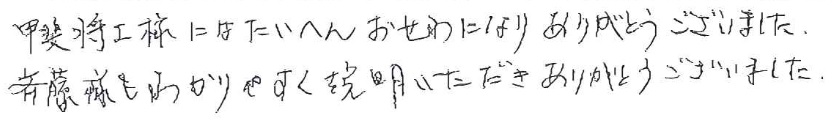 甲斐将工様にはたいへんおせわになりありがとうございました.
斉藤様もわかりやすく説明いただきありがとうございました.